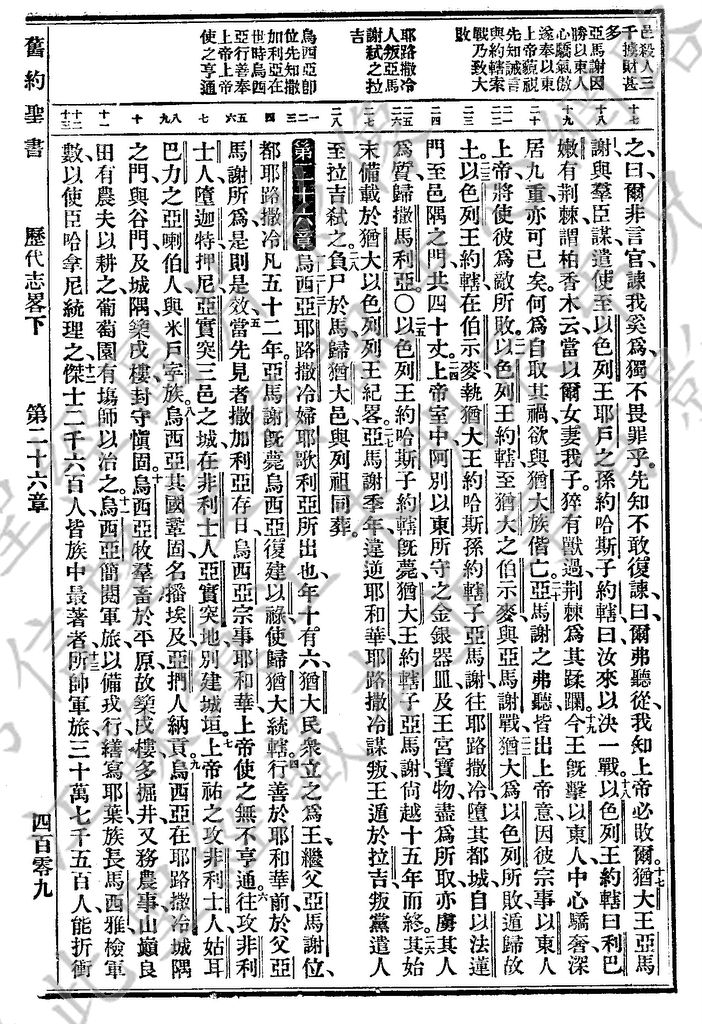 邑殺人三
千擄財甚
多
亞馬謝因
勝以東人
心驕氣傲
遂奉以東
上帝藐視
先知誡言
與約轄索
戰乃致大
敗
耶路撒冷
人叛亞馬
謝弑之拉
吉
烏西亞卽
位先知撒
加利亞在
世時烏西
亞行善奉
上帝上帝
使之亨通
十七
十八
十九
二十
二一
二二
二三
二四
二五
二六
二七
二八
一
二
三
四
五
六
七
八
九
十
十一
十二
十三
之曰爾非言官諫我奚爲獨不畏罪乎先知不敢復諫曰爾弗聽從我知上帝必敗爾十七猶大王亞馬
謝與羣臣謀遣使至以色列王耶戶之孫約哈斯子約轄曰汝來以決一戰十八以色列王約轄曰利巴
嫩有荆棘謂柏香木云當以爾女妻我子猝有獸過荆棘爲其蹂躪十九今王旣擊以東人中心驕奢深
居九重亦可已矣何爲自取其禍欲與猶大族偕亡二十亞馬謝之弗聽皆出上帝意因彼宗事以東人
上帝將使彼爲敵所敗二一以色列王約轄至猶大之伯示麥與亞馬謝戰二二猶大爲以色列所敗遁歸故
土二三以色列王約轄在伯示麥執猶大王約哈斯孫約轄子亞馬謝往耶路撒冷墮其都城自以法蓮
門至邑隅之門共四十丈二四上帝室中阿別以東所守之金銀器皿及王宮寶物盡爲所取亦虜其人
爲質歸撒馬利亞〇二五以色列王約哈斯子約轄旣薨猶大王約轄子亞馬謝尙越十五年而終二六其始
末備載於猶大以色列列王紀畧二七亞馬謝季年違逆耶和華耶路撒冷謀叛王遁於拉吉叛黨遣人
至拉吉弑之二八負尸於馬歸猶大邑與列祖同葬
第二十六章一二烏西亞耶路撒冷婦耶歌利亞所出也年十有六猶大民衆立之爲王繼父亞馬謝位
都耶路撒冷凡五十二年亞馬謝旣薨烏西亞復建以祿使歸猶大統轄四行善於耶和華前於父亞
馬謝所爲是則是效五當先見者撒加利亞存日烏西亞宗事耶和華上帝使之無不亨通六往攻非利
士人墮迦特押尼亞實突三邑之城在非利士人亞實突地別建城垣七上帝祐之攻非利士人姑耳
巴力之亞喇伯人與米戶字族八烏西亞其國鞏固名播埃及亞捫人納貢九烏西亞在耶路撒冷城隅
之門與谷門及城隅築戍樓封守愼固十烏西亞牧羣畜於平原故築戍樓多掘井又務農事山巓良
田有農夫以耕之葡萄園有塲師以治之十一烏西亞簡閱軍旅以備戎行繕寫耶葉族長馬西雅檢軍
數以使臣哈拿尼統理之十二傑士二千六百人皆族中最著者十三所帥軍旅三十萬七千五百人能折衝
舊約聖書 歷代志畧下 第二十六章 四百零九